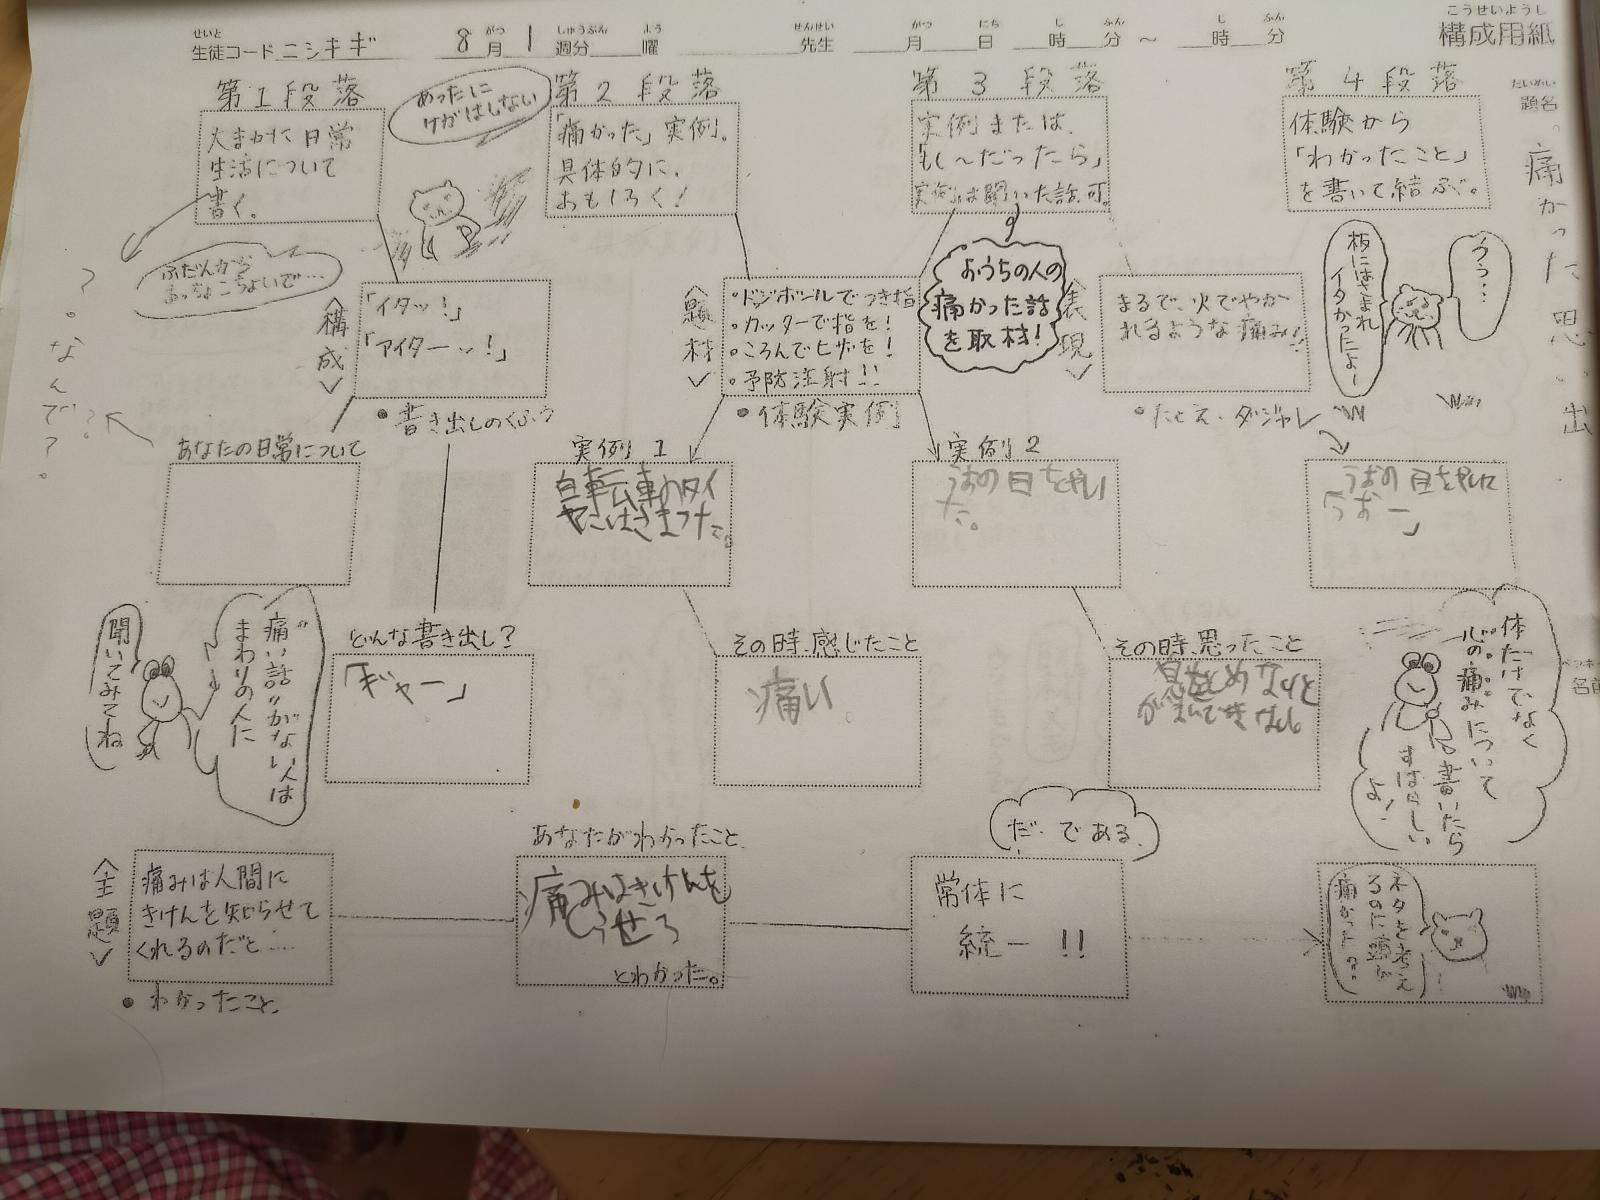 こうせいようし
構成用紙
せいと
生徒コード ニシキギ 8月1週分 曜 先生 月 日 時 分 ～ 時 分
がつ しゅうぶん よう せんせい がつ にち じ ふん じ ふん
だいめい
題名
痛かった思い出
名前
第1段落
大まかな日常
生活について
書く。
あったに
けがはしない
第2段落
「痛かった」実例。
具体的に。
おもしろく!
第3段落
実例または、
「もし〜だったら」
実例は聞いた話可。
第4段落
体験から
「わかったこと」
を書いて結ぶ。
ふだんから
おっちょこちょいで…
?。なんで?。
?
〈構成〉
「イタッ!」
「アイターッ!」
●書き出しのくふう
〈題材〉
・ドジボールでつき指
・カッターで指を!
・ころんでヒザを!
・予防注射!!
●体験実例
おうちの人の
痛かった話
を取材!
〈表現〉
まるで、火でやか
れるような痛み!!
●たとえ・ダジャレ
板にはさまれ
イタかったよー
うぅ…
あなたの日常について
実例1
自転車のタイ
ヤにはさまった。
実例2
うおの目をやい
た。
うおの目をやいて
「うおー」
聞いてみてね
"痛い話"がない人は
まわりの人に
どんな書き出し?
「ギャー」
その時、感じたこと
痛い
その時、思ったこと
息をとめないと
がまんできない
体だけでなく
心の痛みについて
書いたら
すばらしい
よ!
〈主題〉
痛みは人間に
きけんを知らせて
くれるのだと…
●わかったこと
あなたがわかったこと
痛みはきけんを
しらせる
とわかった。
だ・である
常体に
統一!!
ネタを考え
るのに頭が
痛かった…